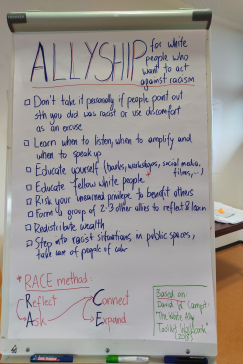 ALLYSHIP for white
people who
want to act
against racism
Don't take it personally if people point out
sth you did was racist or use discomfort
as an excuse
Learn when to listen, when to amplify and
when to speak up
Educate yourself (books, workshops, social media,
films, ...)
Educate fellow white people *
Risk your unearned privilege to benefit others
Form a group of 2-3 other allies to reflect & learn
Redistribute wealth
Step into racist situations, in public spaces,
take care of people of color
* RACE method:
Reflect Connect
Ask Expand
Based on
David
"The White Ally
Toolkit Workbook"